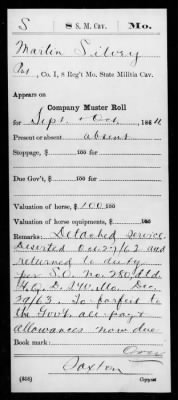 S | 8 S. M. Cav. | Mo.
Martin Silvey
Pvt., Co. I, 8 Reg't Mo. State Militia Cav.
Appears on
Company Muster Roll
for Sept. & Oct., 1864
Present or absent absent
Stoppage, $ 100 for
Due Gov't, $ 100 for
Valuation of horse, $ 100 100
Valuation of horse equipments, $ 100
Remarks: Detached Service.
Deserted Oct. 27/62 and
returned to duty
per S.O. No. 280, dtd
H.Q. D. Mo. Dec.
29/63. To forfeit to
the Govt. all pay &
allowances now due
Book mark:
Over
Saxton
(858) Copyist